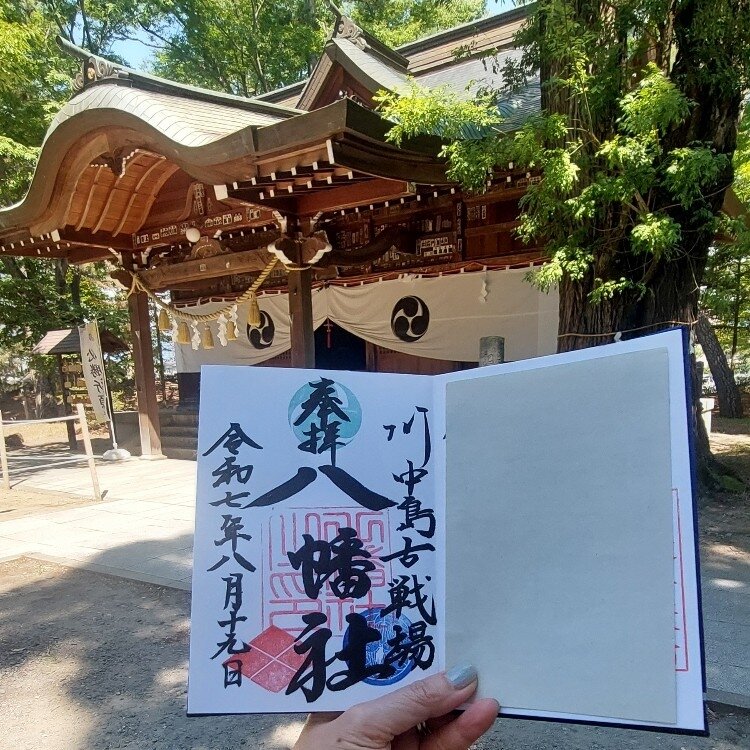 川中島古戦場
奉拝
八幡社
令和七年八月十九日
必勝祈願